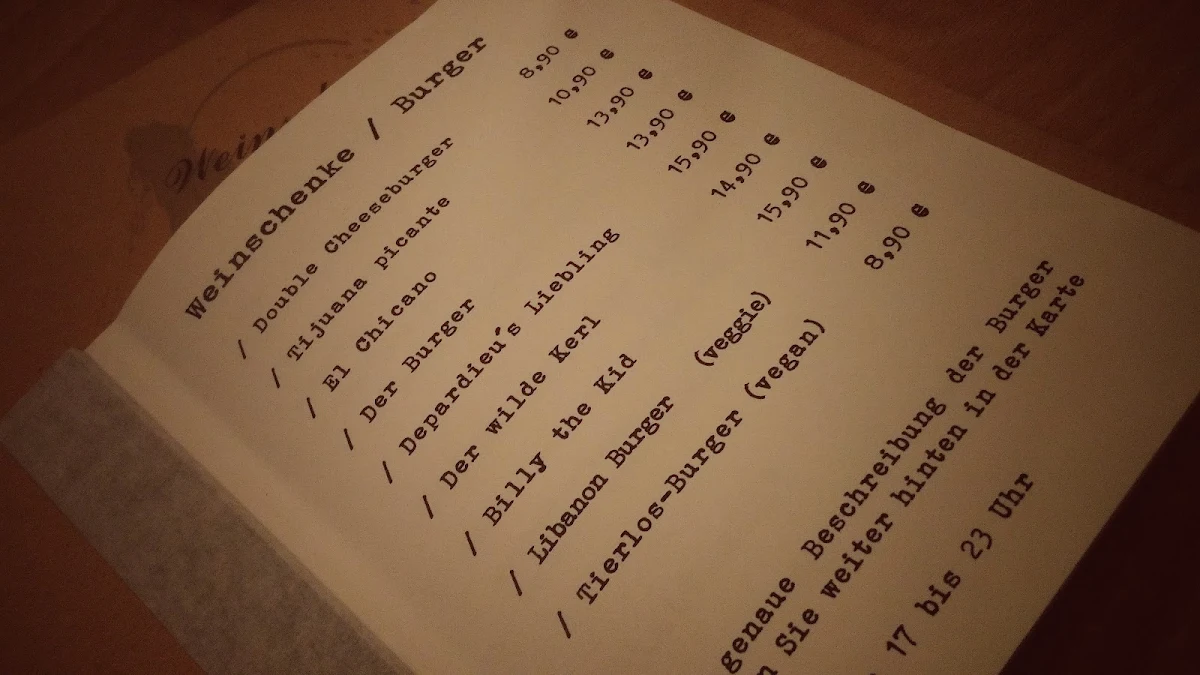 Weinschenke / Burger
/ Double Cheeseburger 8,90 €
/ Tijuana picante 10,90 €
/ El Chicano 13,90 €
/ Der Burger 13,90 €
/ Depardieu´s Liebling 15,90 €
/ Der wilde Kerl 14,90 €
/ Billy the Kid 15,90 €
/ Libanon Burger (veggie) 11,90 €
/ Tierlos-Burger (vegan) 8,90 €
genaue Beschreibung der Burger
Sie weiter hinten in der Karte
17 bis 23 Uhr